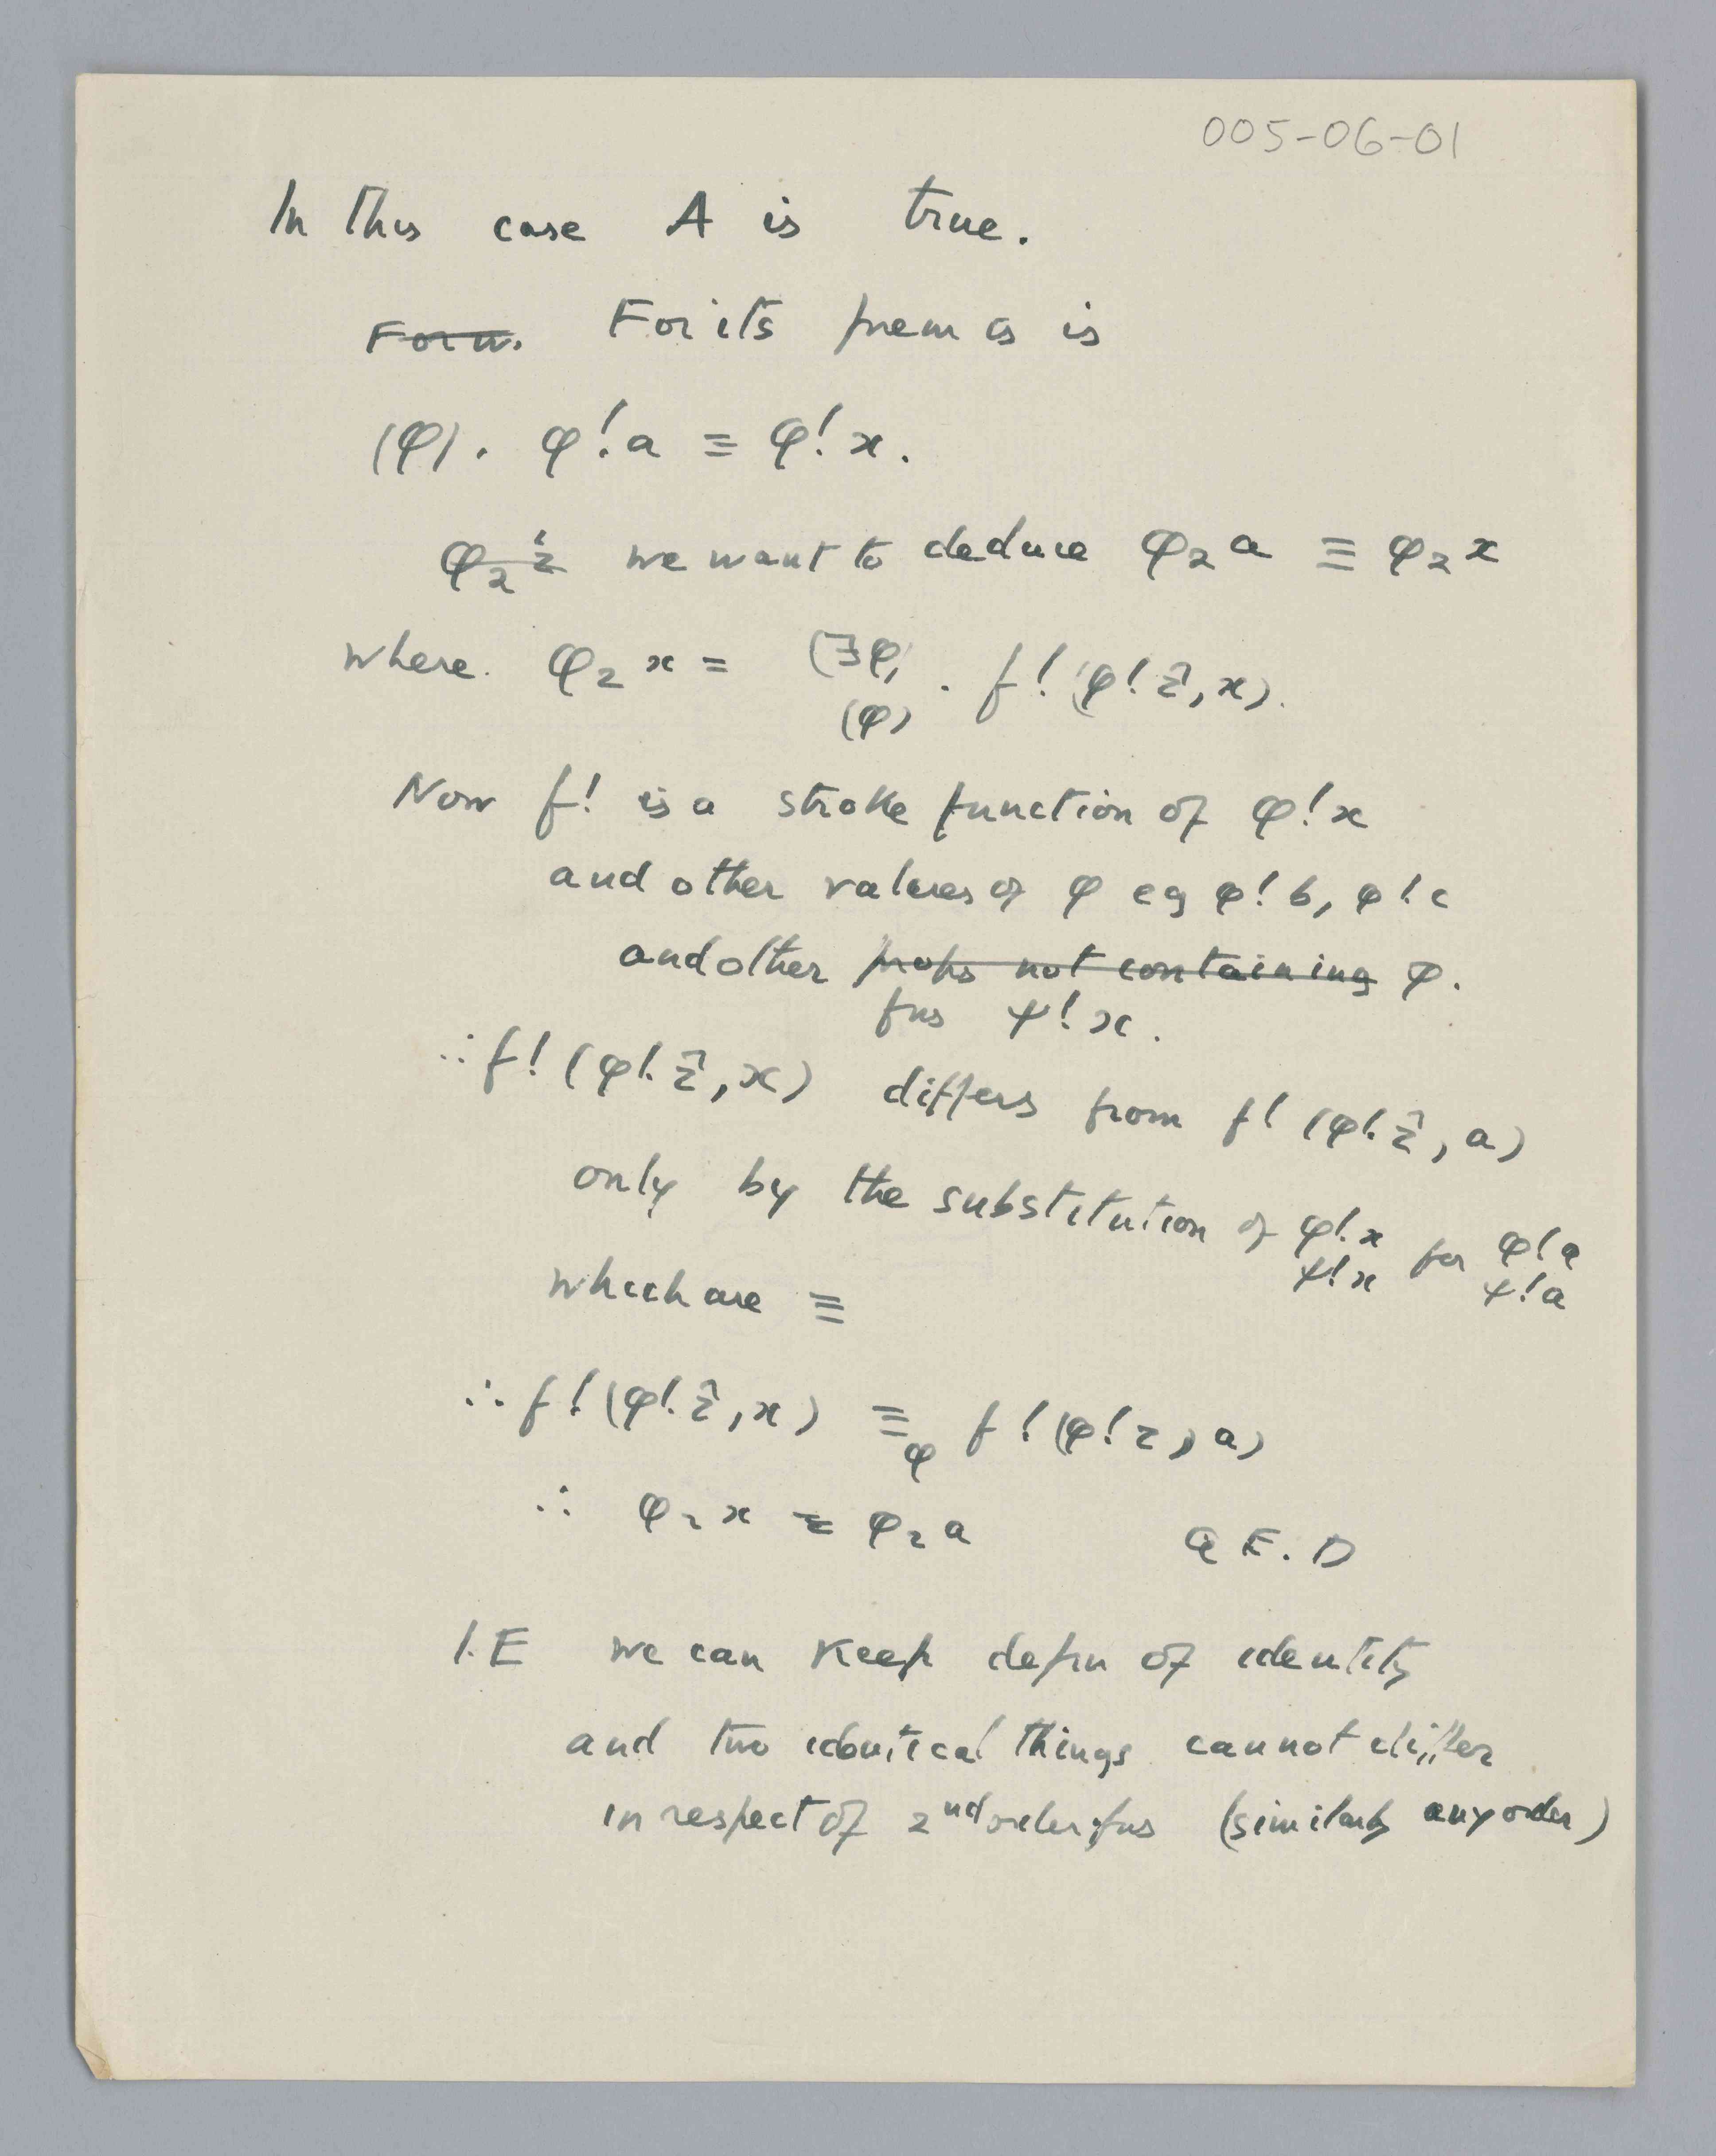 005-06-01
In this case A is true.
Form. For its prem is is
(φ). φ!a ≡ φ!x.
φ₂ẑ we want to deduce φ₂a ≡ φ₂x
where. φ₂x = (∃φ) . f!(φ!ẑ, x).
(φ)
Now f! is a stroke function of φ!x
and other values of φ eg φ!b, φ!c
and other props not containing φ.
fns ψ!x.
∴ f!(φ!ẑ, x) differs from f!(φ!ẑ, a)
only by the substitution of φ!x for φ!a
ψ!x ψ!a
which are ≡
∴ f!(φ!ẑ, x) ≡φ f!(φ!z, a)
∴ φ₂x ≡ φ₂a Q E. D
I.E we can keep defn of identity
and two identical things cannot differ
in respect of 2nd order fns (similarly any order)